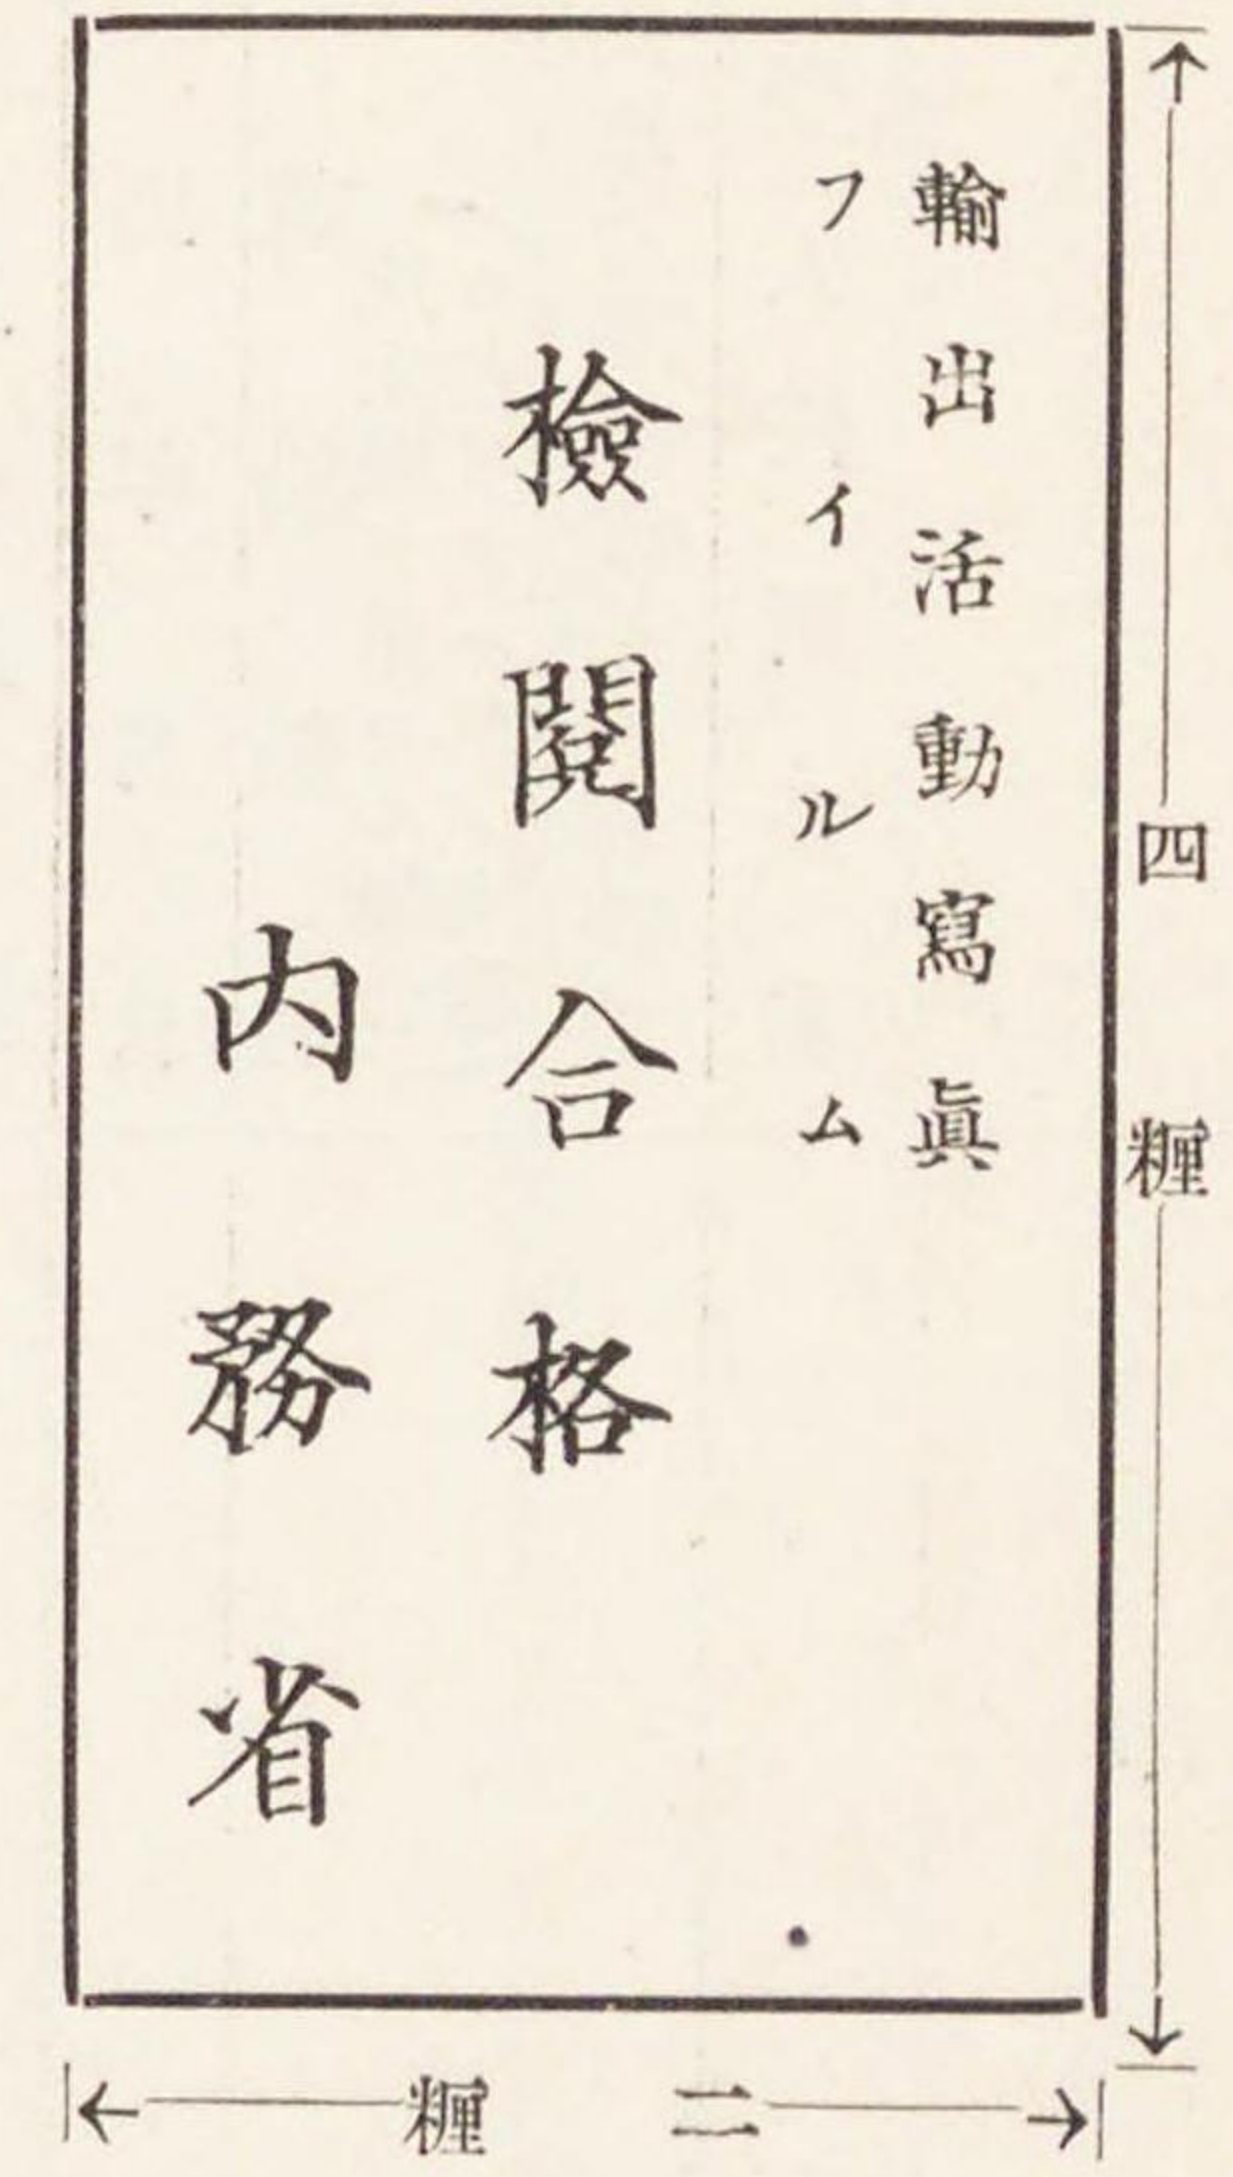 四糎
輸出活動寫眞
フイルム
檢閱合格
内務省
二糎